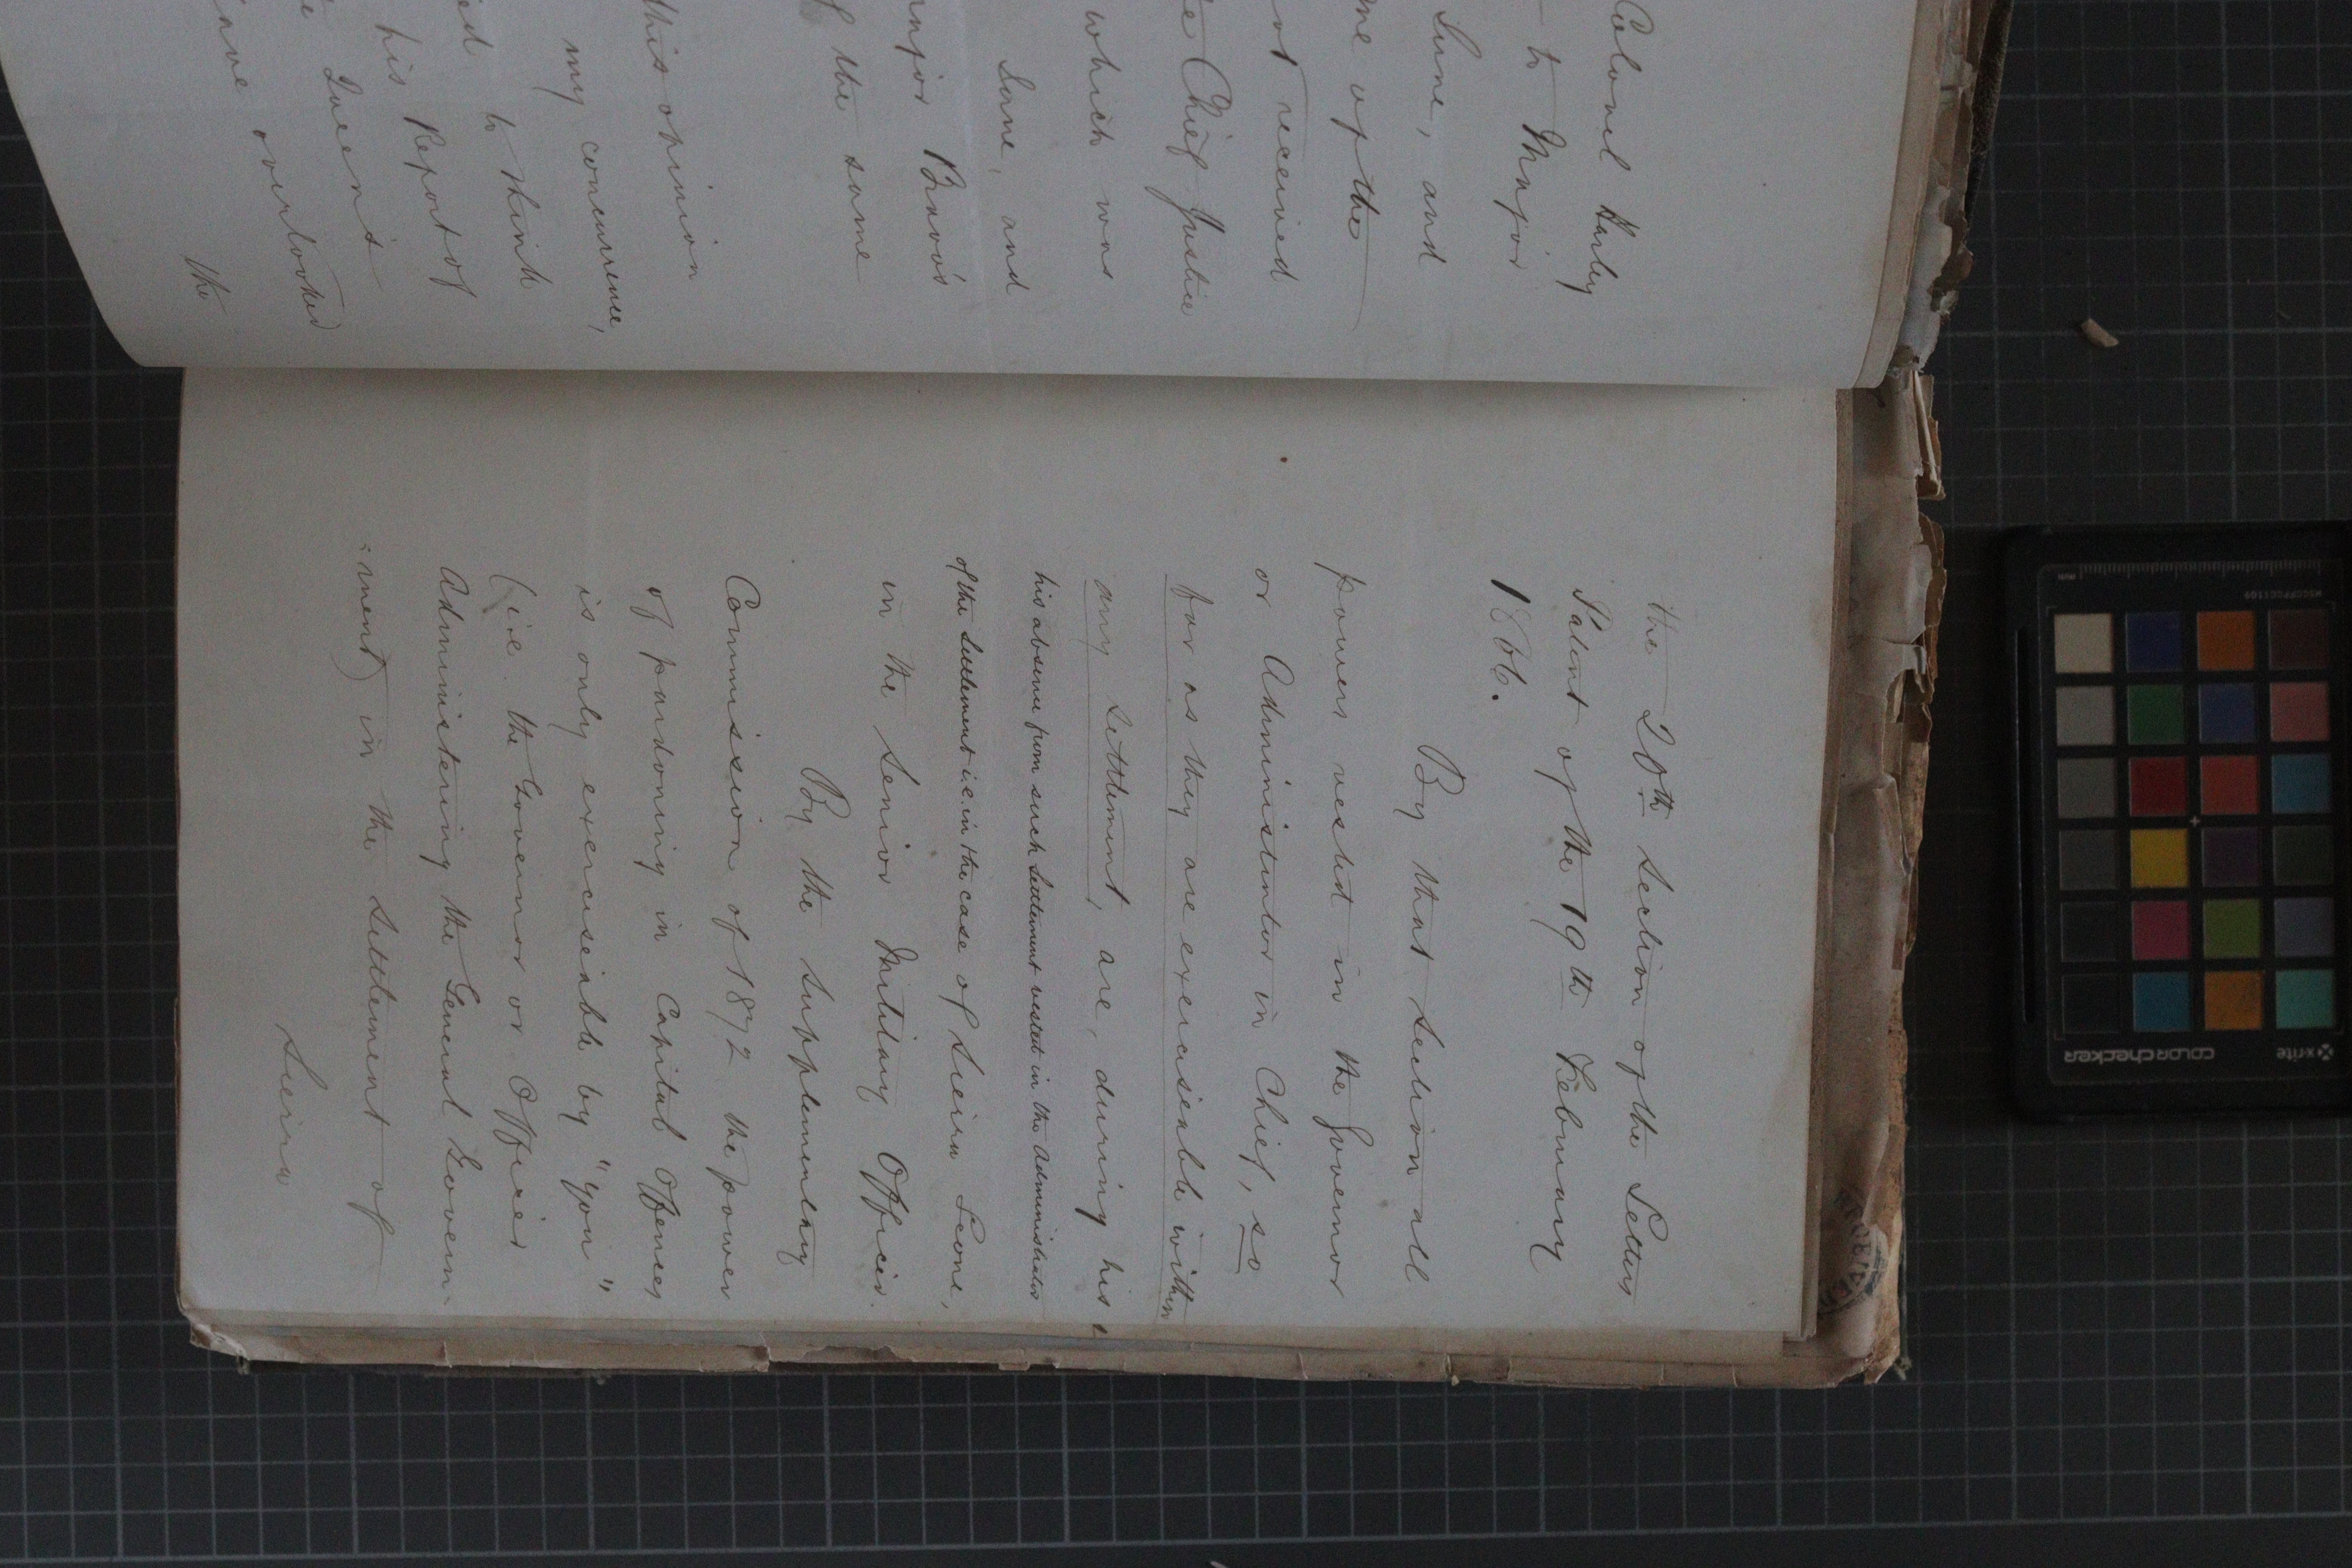 Colonel Harley
to Major
June, and
me of the
not received
e Chief Justice
which was
Leone, and
ajor Bravo's
f the same
this opinion
my concurrence,
ed to think
his Report of
e Queen's
ave overlooked
the
the 20th Section of the Letters
Patent of the 19th February
1866.
By that Section all
powers vested in the Governor
or Administrator in Chief, so
far as they are exercisable within
any Settlement, are, during his
his absence from such Settlement vested in the Administrator
of the Settlement i.e. in the case of Sierra Leone,
in the Senior Military Officer.
By the Supplementary
Commission of 1872 the power
of pardoning in Capital Offenses
is only exercisable by "you"
(i.e. the Governor or Officer
Administering the General Govern-
:ment) in the Settlement of
Sierra
x-rite
colorchecker
MSCCPPCC1109
mm